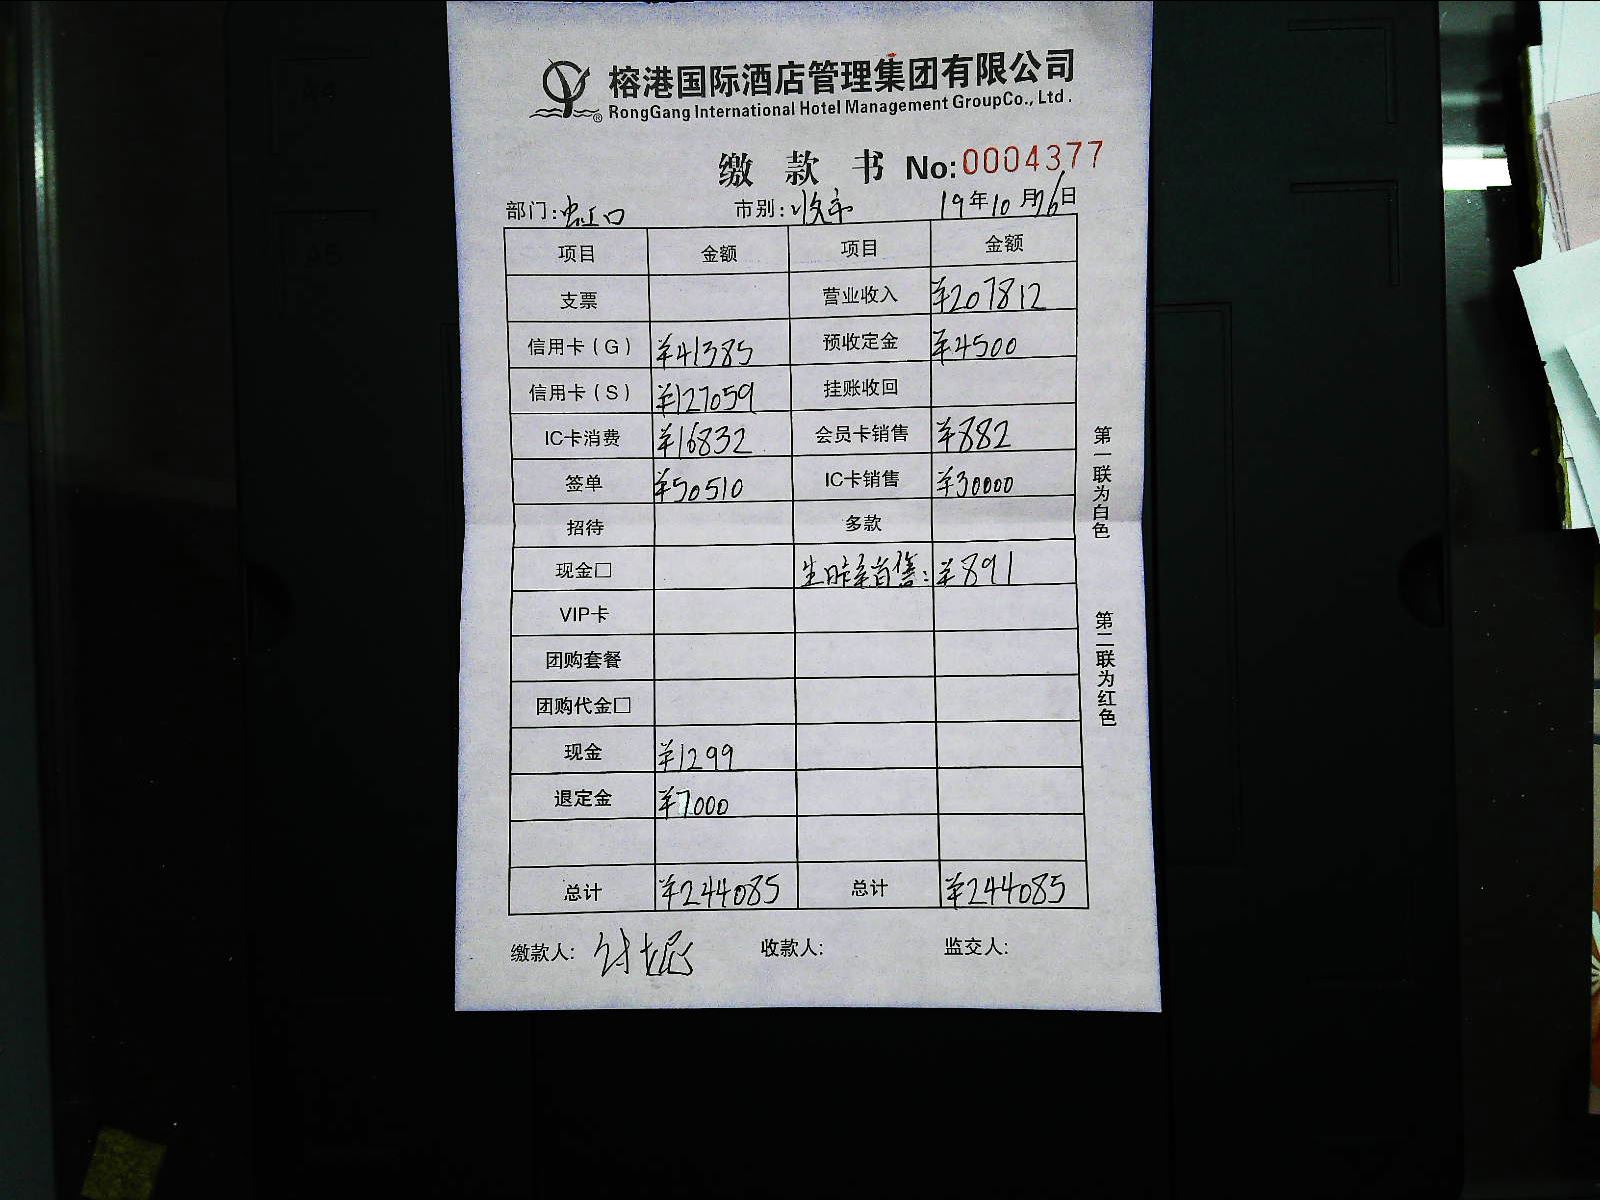 榕港国际酒店管理集团有限公司
RongGang International Hotel Management GroupCo., Ltd.
缴 款 书 No:0004377
部门:虹口 市别:收市 19年10月26日
项目 金额 项目 金额
支票 营业收入 ¥207812
信用卡(G) ¥41385 预收定金 ¥4500
信用卡(S) ¥127059 挂账收回
IC卡消费 ¥16832 会员卡销售 ¥882
签单 ¥50510 IC卡销售 ¥30000
招待 多款
现金□ ¥891
VIP卡
团购套餐
团购代金□
现金 ¥1299
退定金 ¥7000
总计 ¥244085 总计 ¥244085
缴款人: 收款人: 监交人:
第一联为白色
第二联为红色